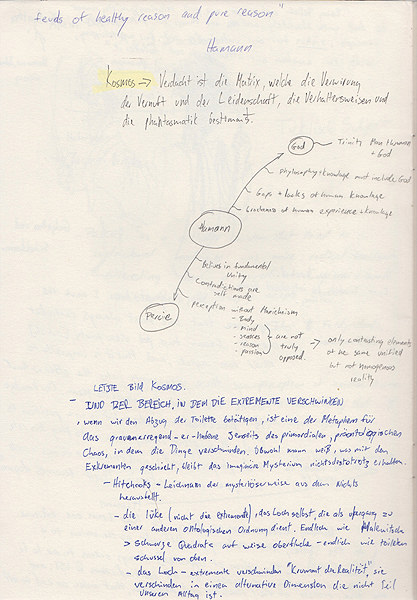 feuds of healthy reason and pure reason"
Hamann
Kosmos → Verdacht ist die Matrix, welche die Verwirrung
der Vernuft und der Leidenschaft, die Verhaltensweisen und
die phantasmatik bestimmt.
God
Trinity Man + Hamann
+ God
phylosophy + knowledge must include God
Gaps + looks at human knowledge
brockenness of human experience + knowledge
Hamann
Belives in fundamental
Unity
Contradictions are
self made
Perception without Manicheism
- Body
- mind
- senses
- reason
- passion
are not
truly
opposed.
→ only contrasting elements
of the same unified
but not homogenous
reality
Percive
LETZTE Bild KOSMOS.
- SIND DER BEREICH, IN DEM DIE EXTREMENTE VERSCHWINKEN
, wenn wir den Abzug der Toilette betätigen, ist eine der Metaphern für
das grauenerregend-er-habene Jenseits des primordialen, präontologischen
Chaos, in dem die Dinge verschwinden. Obwohl man weiß, was mit den
Exkrementen geschieht, bleibt das Imaginäre Mysterium nichtsdestotrotz erhalten.
- Hitchcocks - Leichnam der mysteriöserweise aus dem Nichts
herausfällt.
- die lüke (nicht die extremente), das Loch selbst, die als übergang zu
einer anderen ontologischen Ordnung dient. Endlich wie Malewitsch
> schwarze Quadrat auf weise oberfläche - endlich wie toiletten
schüssel von oben.
- das Loch - extremente verschwinden "Krümmt die Realität", sie
verschwinden in einen alternative Dimension die nicht teil
unseren Alltag ist.